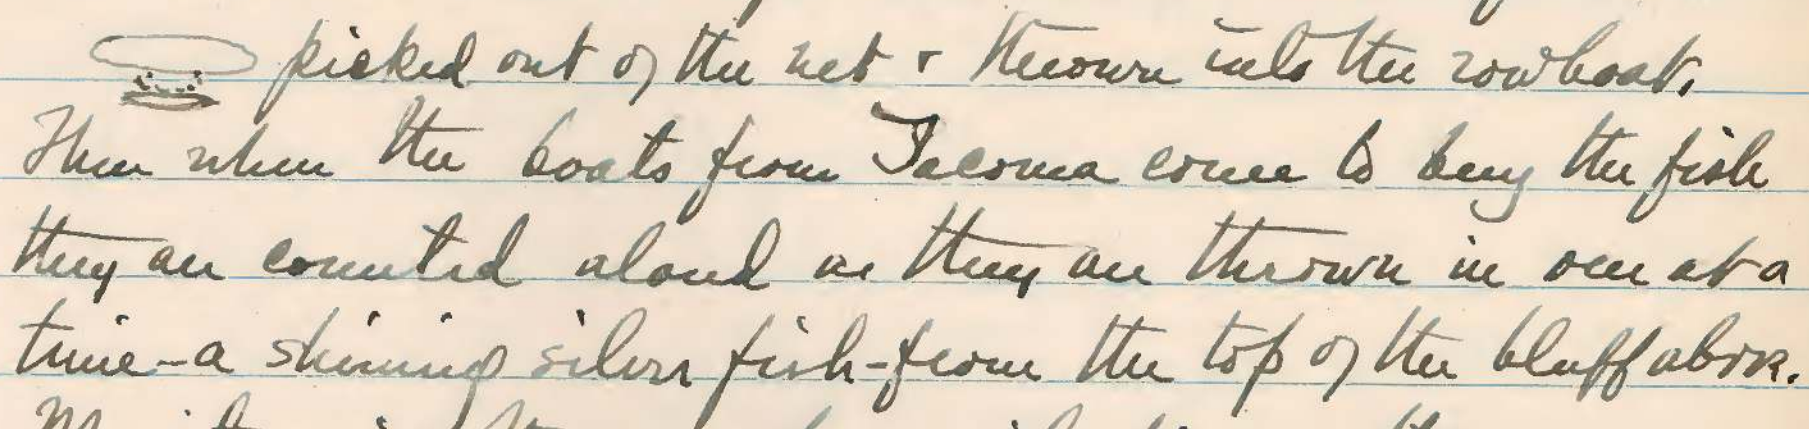 picked out of the net + thrown into the rowboat.
Then when the boats from Tacoma come to buy the fish
they are counted aloud as they are thrown in one at a
time - a shining silver fish - from the top of the bluff above.